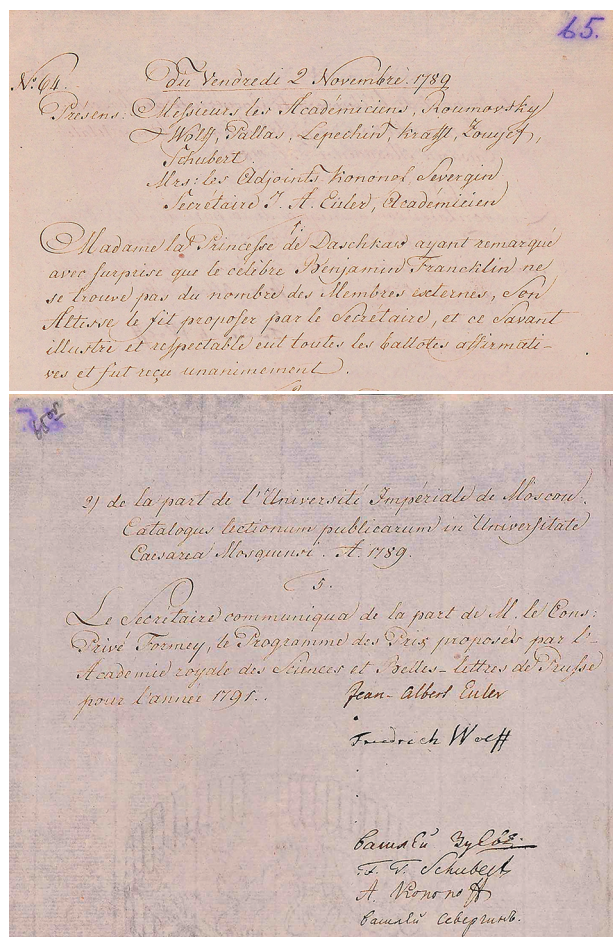 65.
N.º 64.
Du Vendredi 2 Novembre. 1789
Présens: Messieurs les Académiciens, Roumovsky
Wolff, Pallas, Lepechin, Krafft, Zouyef,
Schubert.
Mrs: les Adjoints Kononof, Severgin
Secrétaire J. A. Euler, Académicien
1.
Madame la Princesse de Daschkaw ayant remarqué
avec surprise que le célèbre Benjamin Francklin ne
se trouve pas du nombre des Membres externes, Son
Altesse le fit proposer par le Secrétaire, et ce Savant
illustre et respectable eut toutes les ballotes affirmati-
ves et fut reçu unanimement.
2) de la part de l'Université Impériale de Moscou.
Catalogus lectionum publicarum in Universitate
Caesarea Mosquensi. A. 1789.
5.
Le Secrétaire communiqua de la part de M. le Cons:
Privé Formey, le Programme des Prix proposés par l'-
Académie royale des Sciences et Belles-lettres de Prusse
pour l'année 1791.
Jean-Albert Euler
Friedrich Wolff
Василей Зуевъ.
F. T. Schubert
A. Kononoff
Василей Севергинъ.